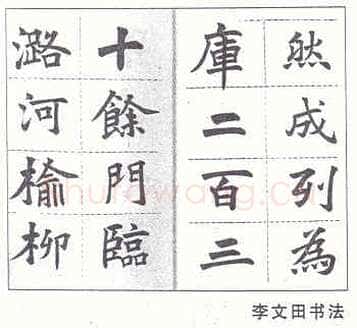 然成列為
庫二百三
十餘門臨
潞河榆柳
李文田书法